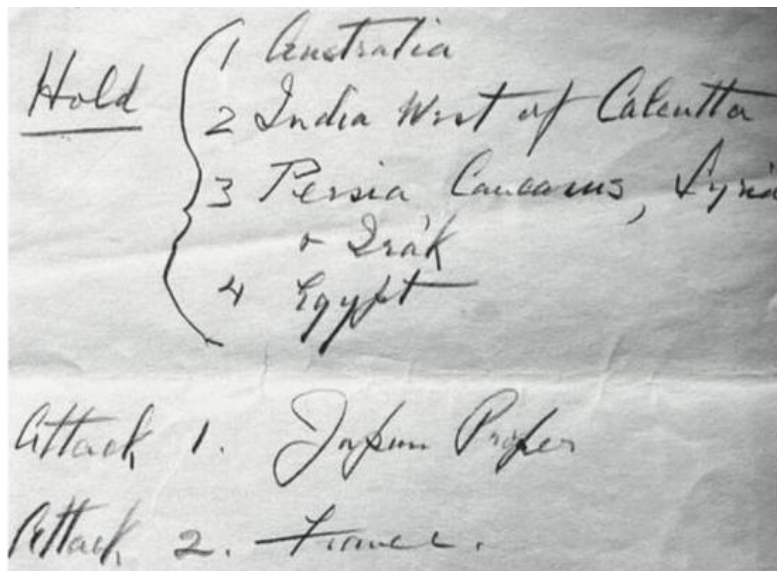 Hold
1 Australia
2 India West of Calcutta
3 Persia Caucasus, Syria
+ Irák
4 Egypt
Attack 1. Japan Proper
Attack 2. France.